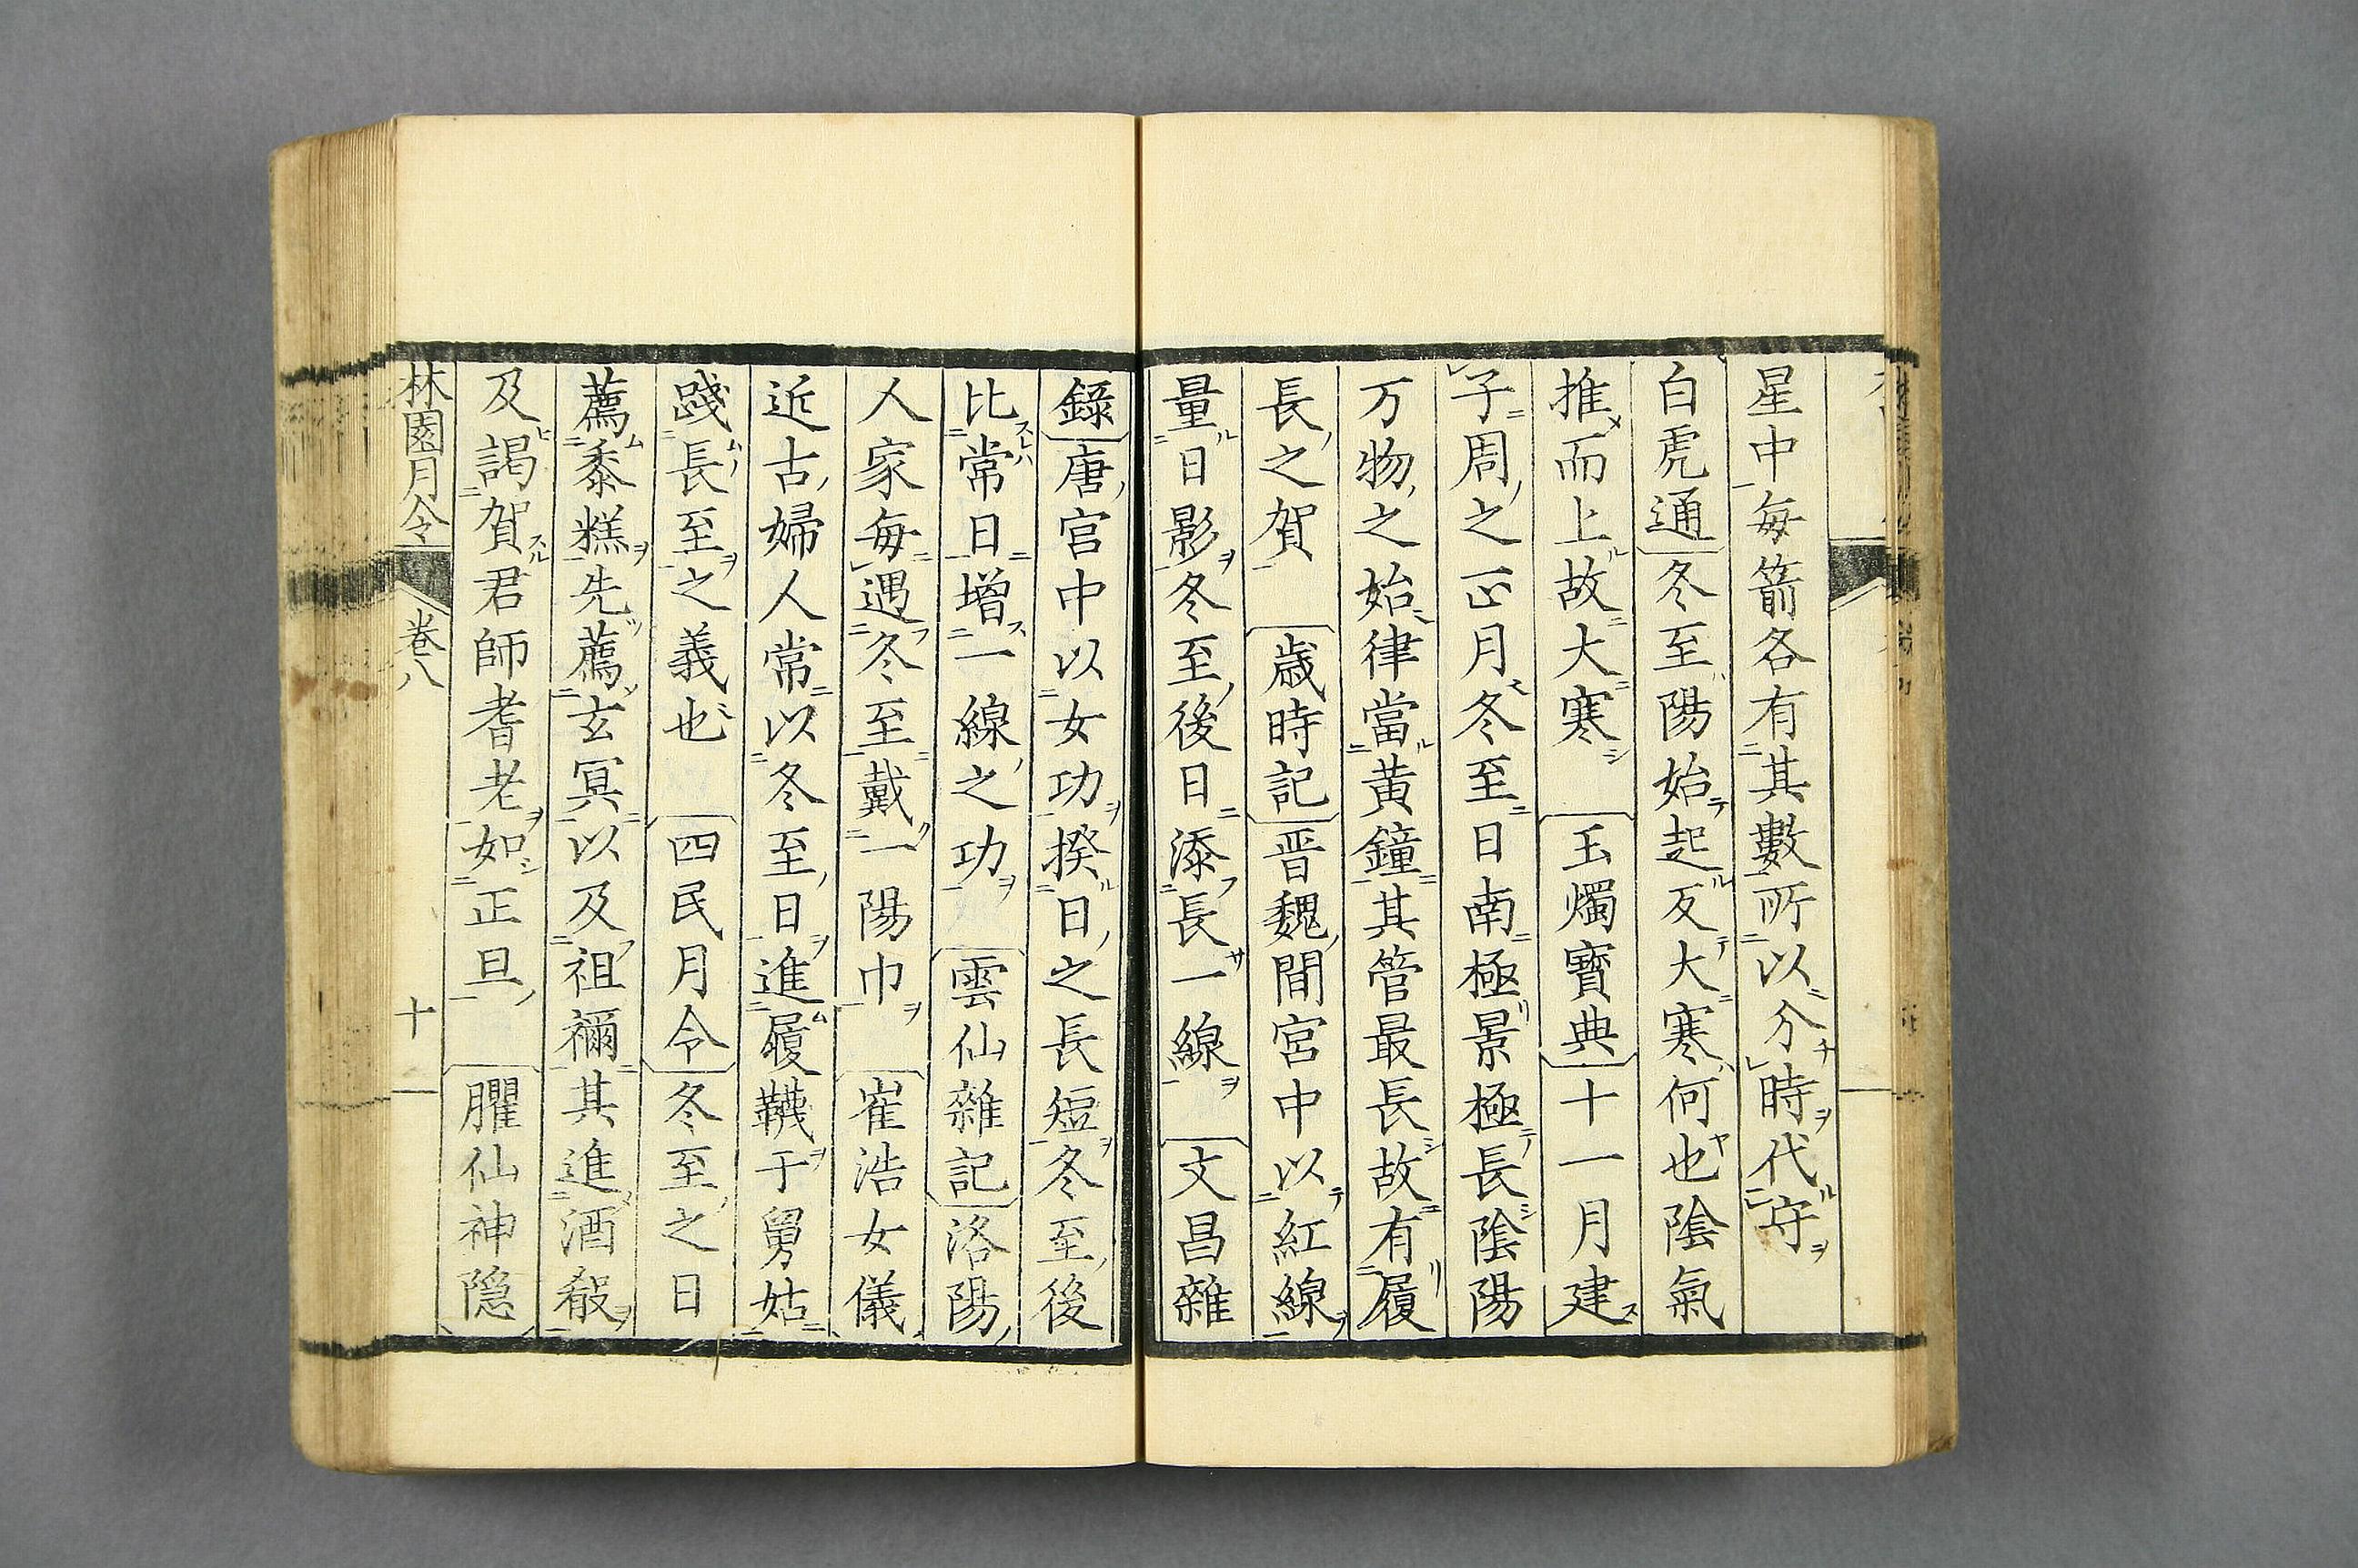 星中毎箭各有其數所以分時代守
白虎通冬至陽始起反大寒何也陰氣
推而上故大寒　玉燭寶典十一月建
子周之正月冬至日南極景極長陰陽
万物之始律當黃鐘其管最長故有履
長之賀　歳時記晋魏間宮中以紅線
量日影冬至後日添長一線　文昌雜
錄唐宮中以女功揆日之長短冬至後
比常日增一線之功　雲仙雜記洛陽
人家每遇冬至戴一陽巾　崔浩女儀
近古婦人常以冬至日進履韈于舅姑
踐長至之義也　四民月令冬至之日
薦黍糕先薦玄冥以及祖禰其進酒殽
及謁賀君師耆老如正旦　臞仙神隐
林園月令　卷八　十